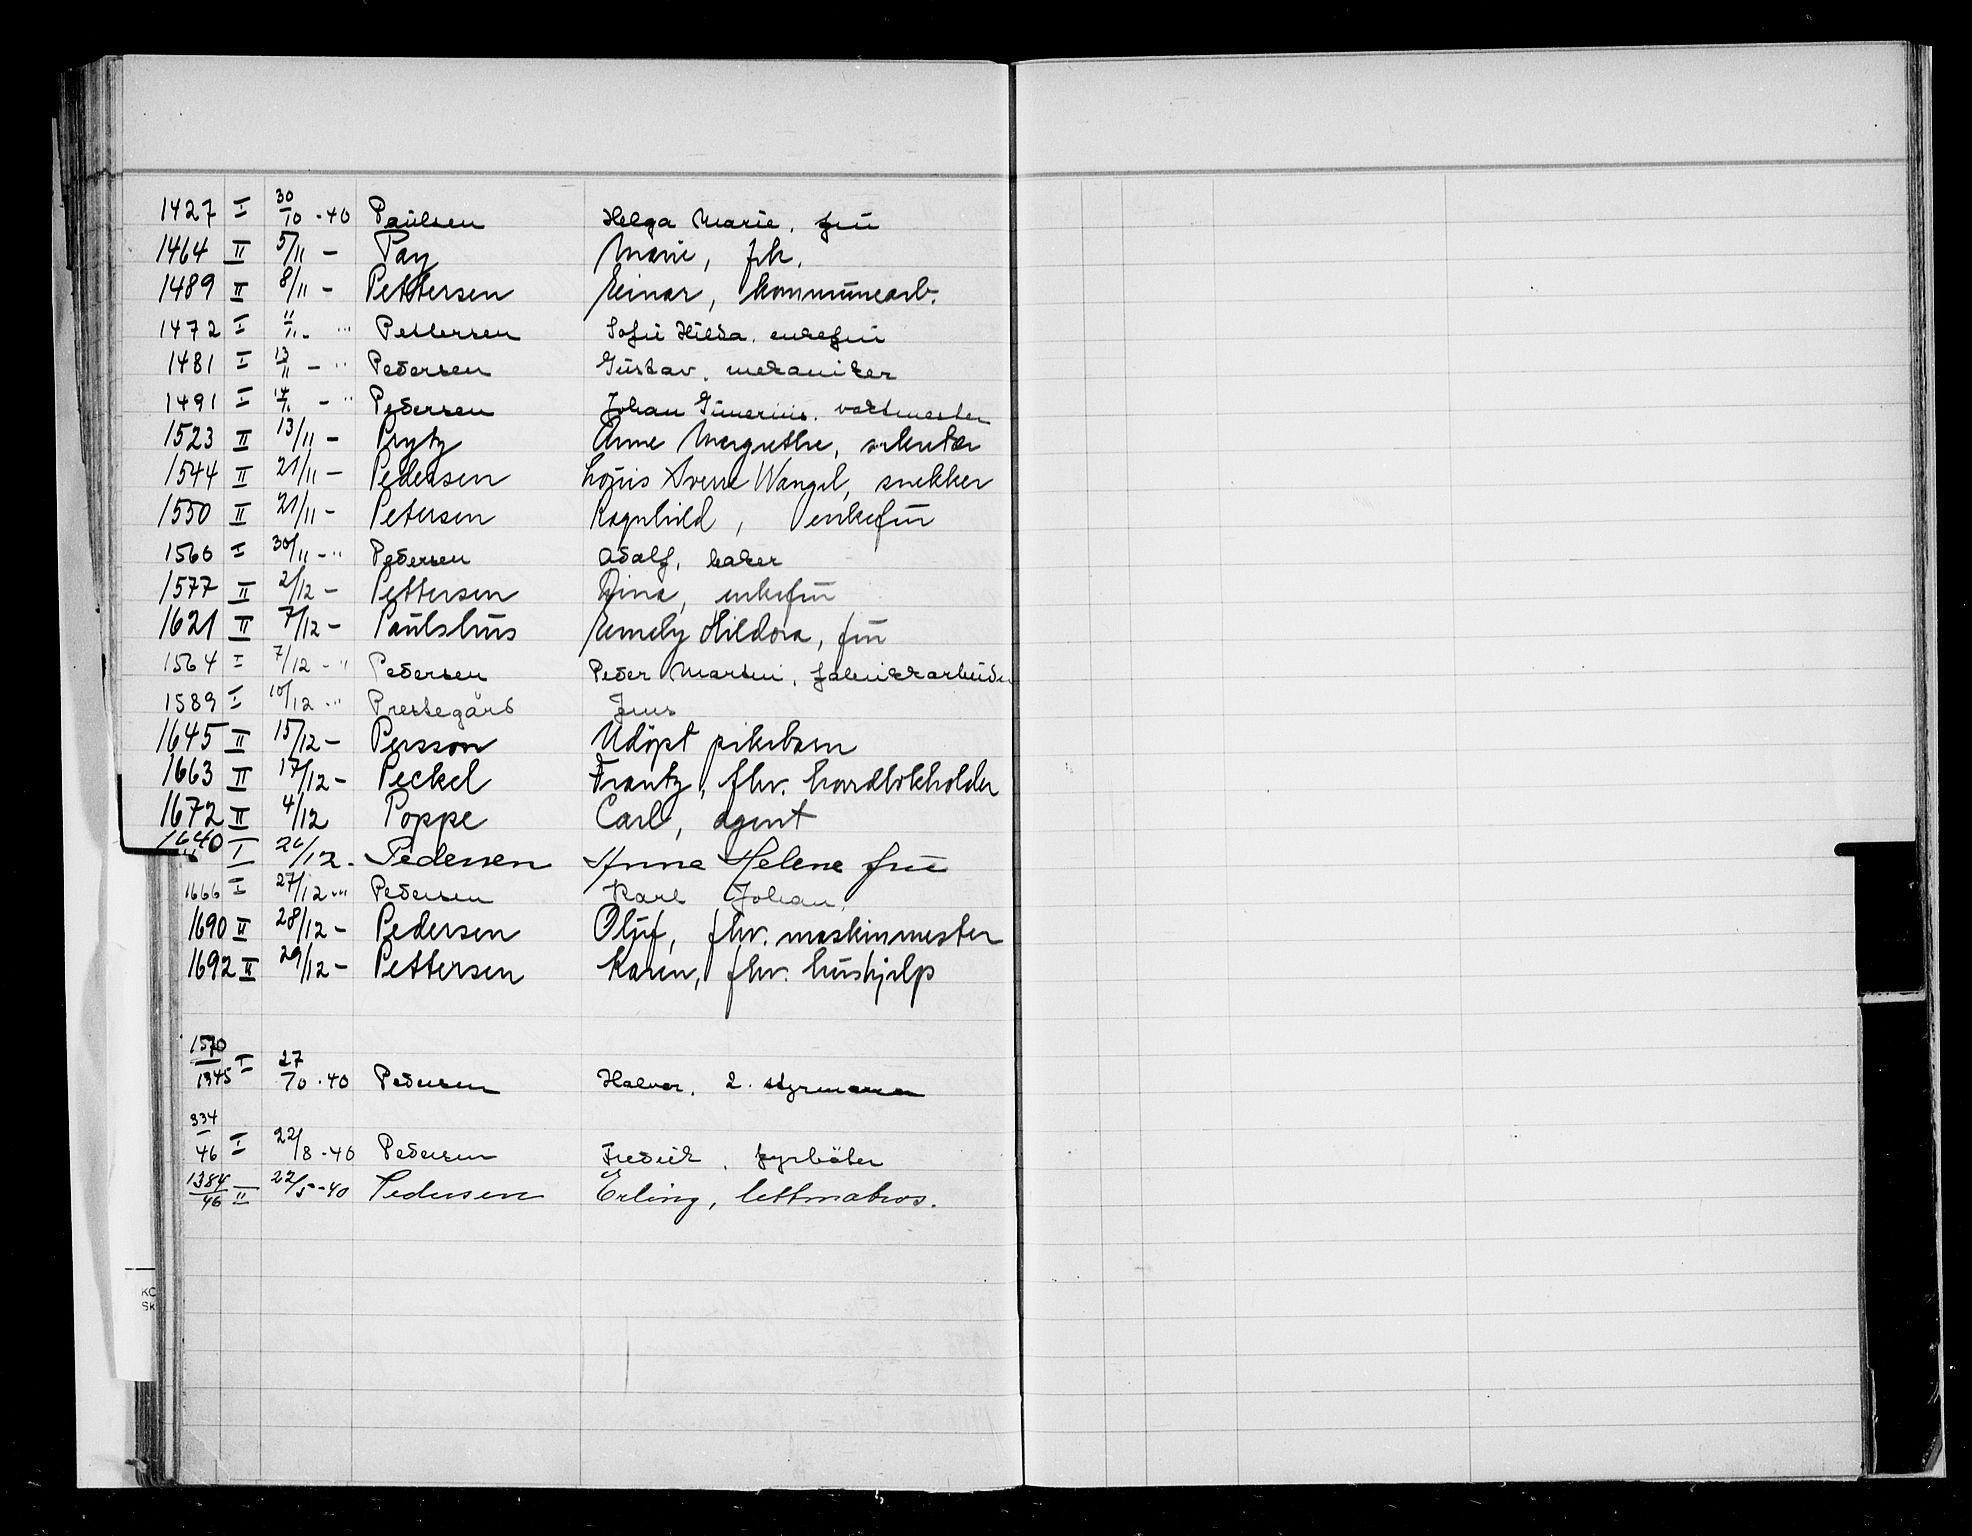 1427 I 30/10 - 40 Paulsen Helga Marie, fru
1464 II 5/11 - Pay Marie, frk.
1489 II 8/11 - Pettersen Einar, kommunearb.
1472 I 11/11 - " Pettersen Sofie Hilda, enkefru
1481 I 13/11 - " Pedersen Gustav, mekaniker
1491 I 14/11 - " Pedersen Johan vaktmester
1523 II 13/11 - Prytz Anne Margrethe, sekretær
1544 II 21/11 - Pedersen Louis Sverre Wangel, snekker
1550 II 21/11 - Petersen Ragnhild, enkefru
1560 I 30/11 - " Pedersen Adolf, baker
1577 II 2/12 - Pettersen Dina, enkefru
1621 II 7/12 - Paulshus Emely Hildora, fru
1564 I 7/12 - " Pedersen Peder Martin, fabrikkarbeider
1589 I 10/12 - " Prestegård Jens
1645 II 15/12 - Persson Udöpt pikebarn
1663 II 17/12 - Peckel Frantz, fhv.
1672 II 4/12 Poppe Carl, agent
1640 I 26/12 - Pedersen Anna Helene fru
1666 I 27/12 - " Pedersen Karl Johan,
1690 II 28/12 - Pedersen Oluf, fhv. maskinmester
1692 II 29/12 - Pettersen Karen, fhv. hushjelp
1570/1945 I 27/10 - 40 Pedersen Halvor, 2. styrmann
334/46 I 22/8 - 40 Pedersen Fredrik, fyrbøter
1384/46 II 22/5 - 40 Pedersen Erling, lettmatros.